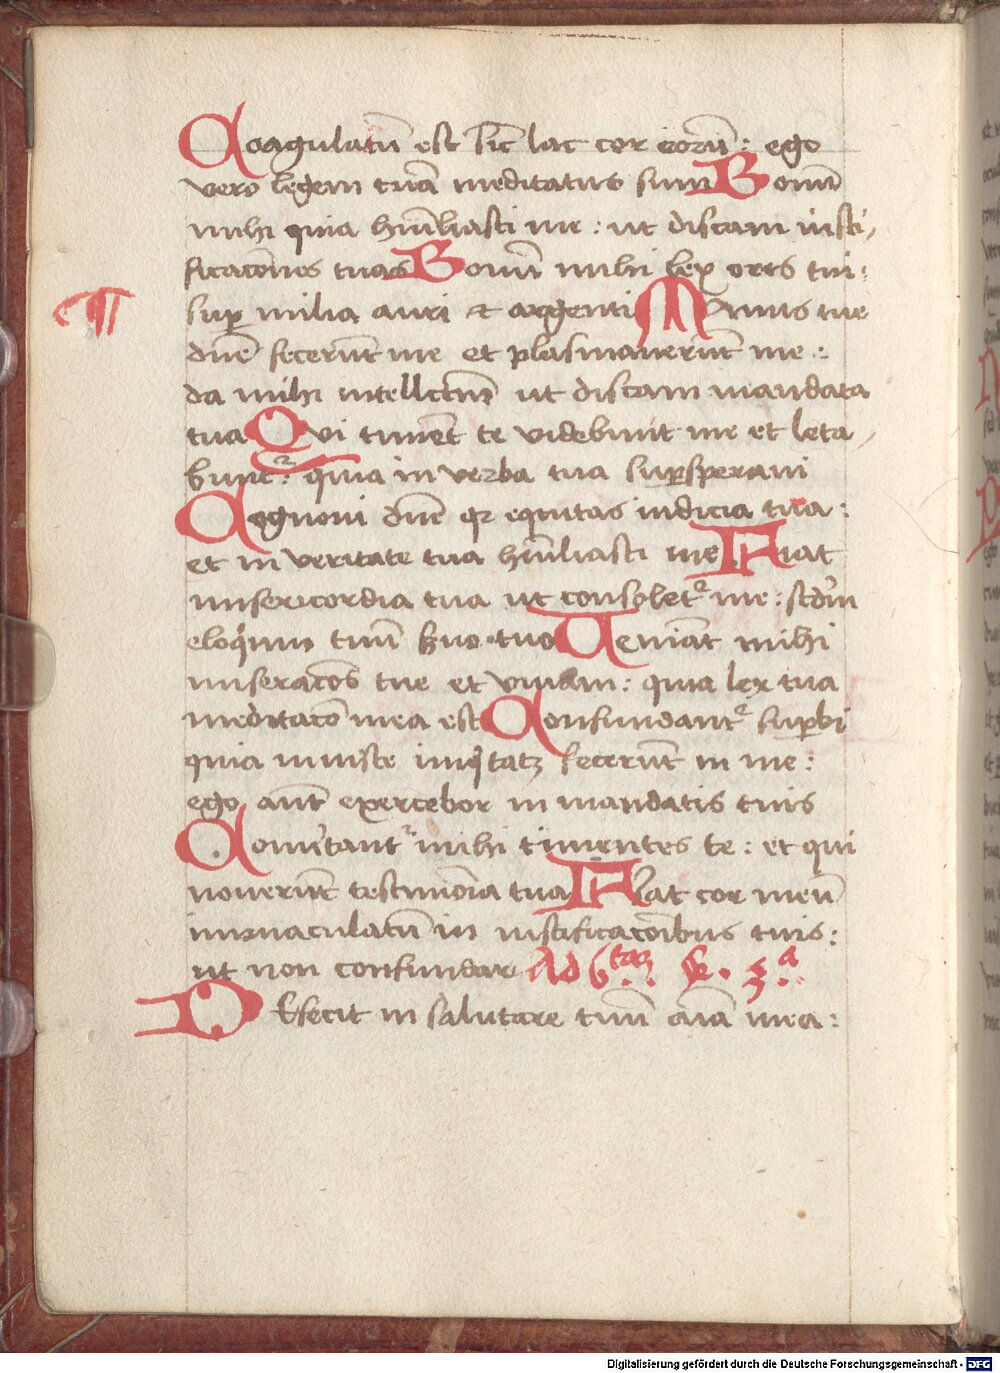 Coagulatū est sic lac cor eorū : ego
vero legem tuā meditatus sum Bonū
mihi quia hūiliasti me : ut discam iusti,
ficacōnes tuas Bonū mihi lex oris tui :
sup milia auri et argenti Manus tue
dnē fecerūt me et plasmaverūt me :
da mihi intellctm̄ ut discam mandata
tua Qvi timēt te videbunt me et leta,
bunt᷑ : quia in verba tua supsperavi
Cognovi dnē qꝛ equitas iudicia tua :
et in veritate tua hūiliasti me Fiat
misericordia tua ut consolet᷑ me : scdm̄
eloqium tuū s̄vo tuo Veniāt mihi
miseracōes tue et vivam : quia lex tua
meditacō mea est Confundant᷑ supbi
quia iniuste iniqtatꝫ fecerūt in me :
ego autē exercebor in mandatis tuis
Convtant᷑ mihi timentes te : et qui
noverūt testimōia tua Fiat cor meū
immaculatū in iustificacōibus tuis :
ut non confundar Ad 6tam
DEfecit in salutare tuū aīa mea :
Digitalisierung gefördert durch die Deutsche Forschungsgemeinschaft - DFG